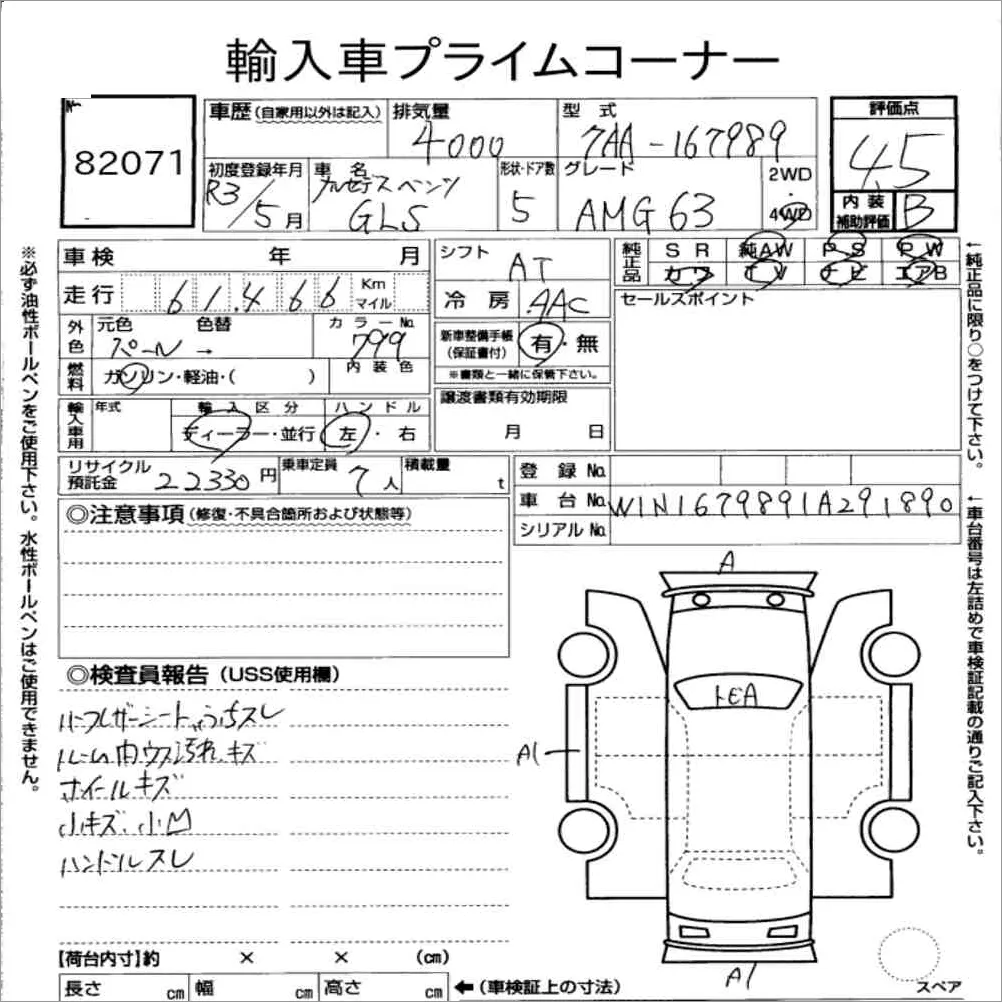 輸入車プライムコーナー
No.
82071
車歴(自家用以外は記入) 排気量 型 式 評価点
4000 7AA-167989 4.5
初度登録年月 車 名 形状・ドア数 グレード 2WD・4WD 内装補助評価 B
R3/5月 メルセデスベンツ GLS 5 AMG63
車検 年 月
シフト AT
純正品 SR 純AW PS PW
カワ TV ナビ エアB
走行 61,466 Km マイル
冷房 AAC
セールスポイント
外色 元色 色替 カラーNo.
パール → 799
新車整備手帳(保証書付) 有・無
※書類と一緒に保管下さい。
燃料 ガソリン・軽油・( ) 内装色
譲渡書類有効期限
月 日
輸入車用 年式 輸入区分 ハンドル
ディーラー・並行 左・右
リサイクル預託金 22330円 乗車定員 7人 積載量 t
登録No.
車台No. W1N1679891A291890
シリアルNo.
◎注意事項(修復・不具合箇所および状態等)
◎検査員報告(USS使用欄)
ハーフレザーシートよごれスレ
ルーム内ウス汚れ、キズ
ホイールキズ
小キズ、小凹
ハンドルスレ
A
トビA
A1
A1
【荷台内寸】約 × × (cm)
長さ cm 幅 cm 高さ cm ←(車検証上の寸法)
スペア
※必ず油性ボールペンをご使用下さい。水性ボールペンはご使用できません。
←純正品に限り○をつけて下さい。
←車台番号は左詰めで車検証記載の通りご記入下さい。